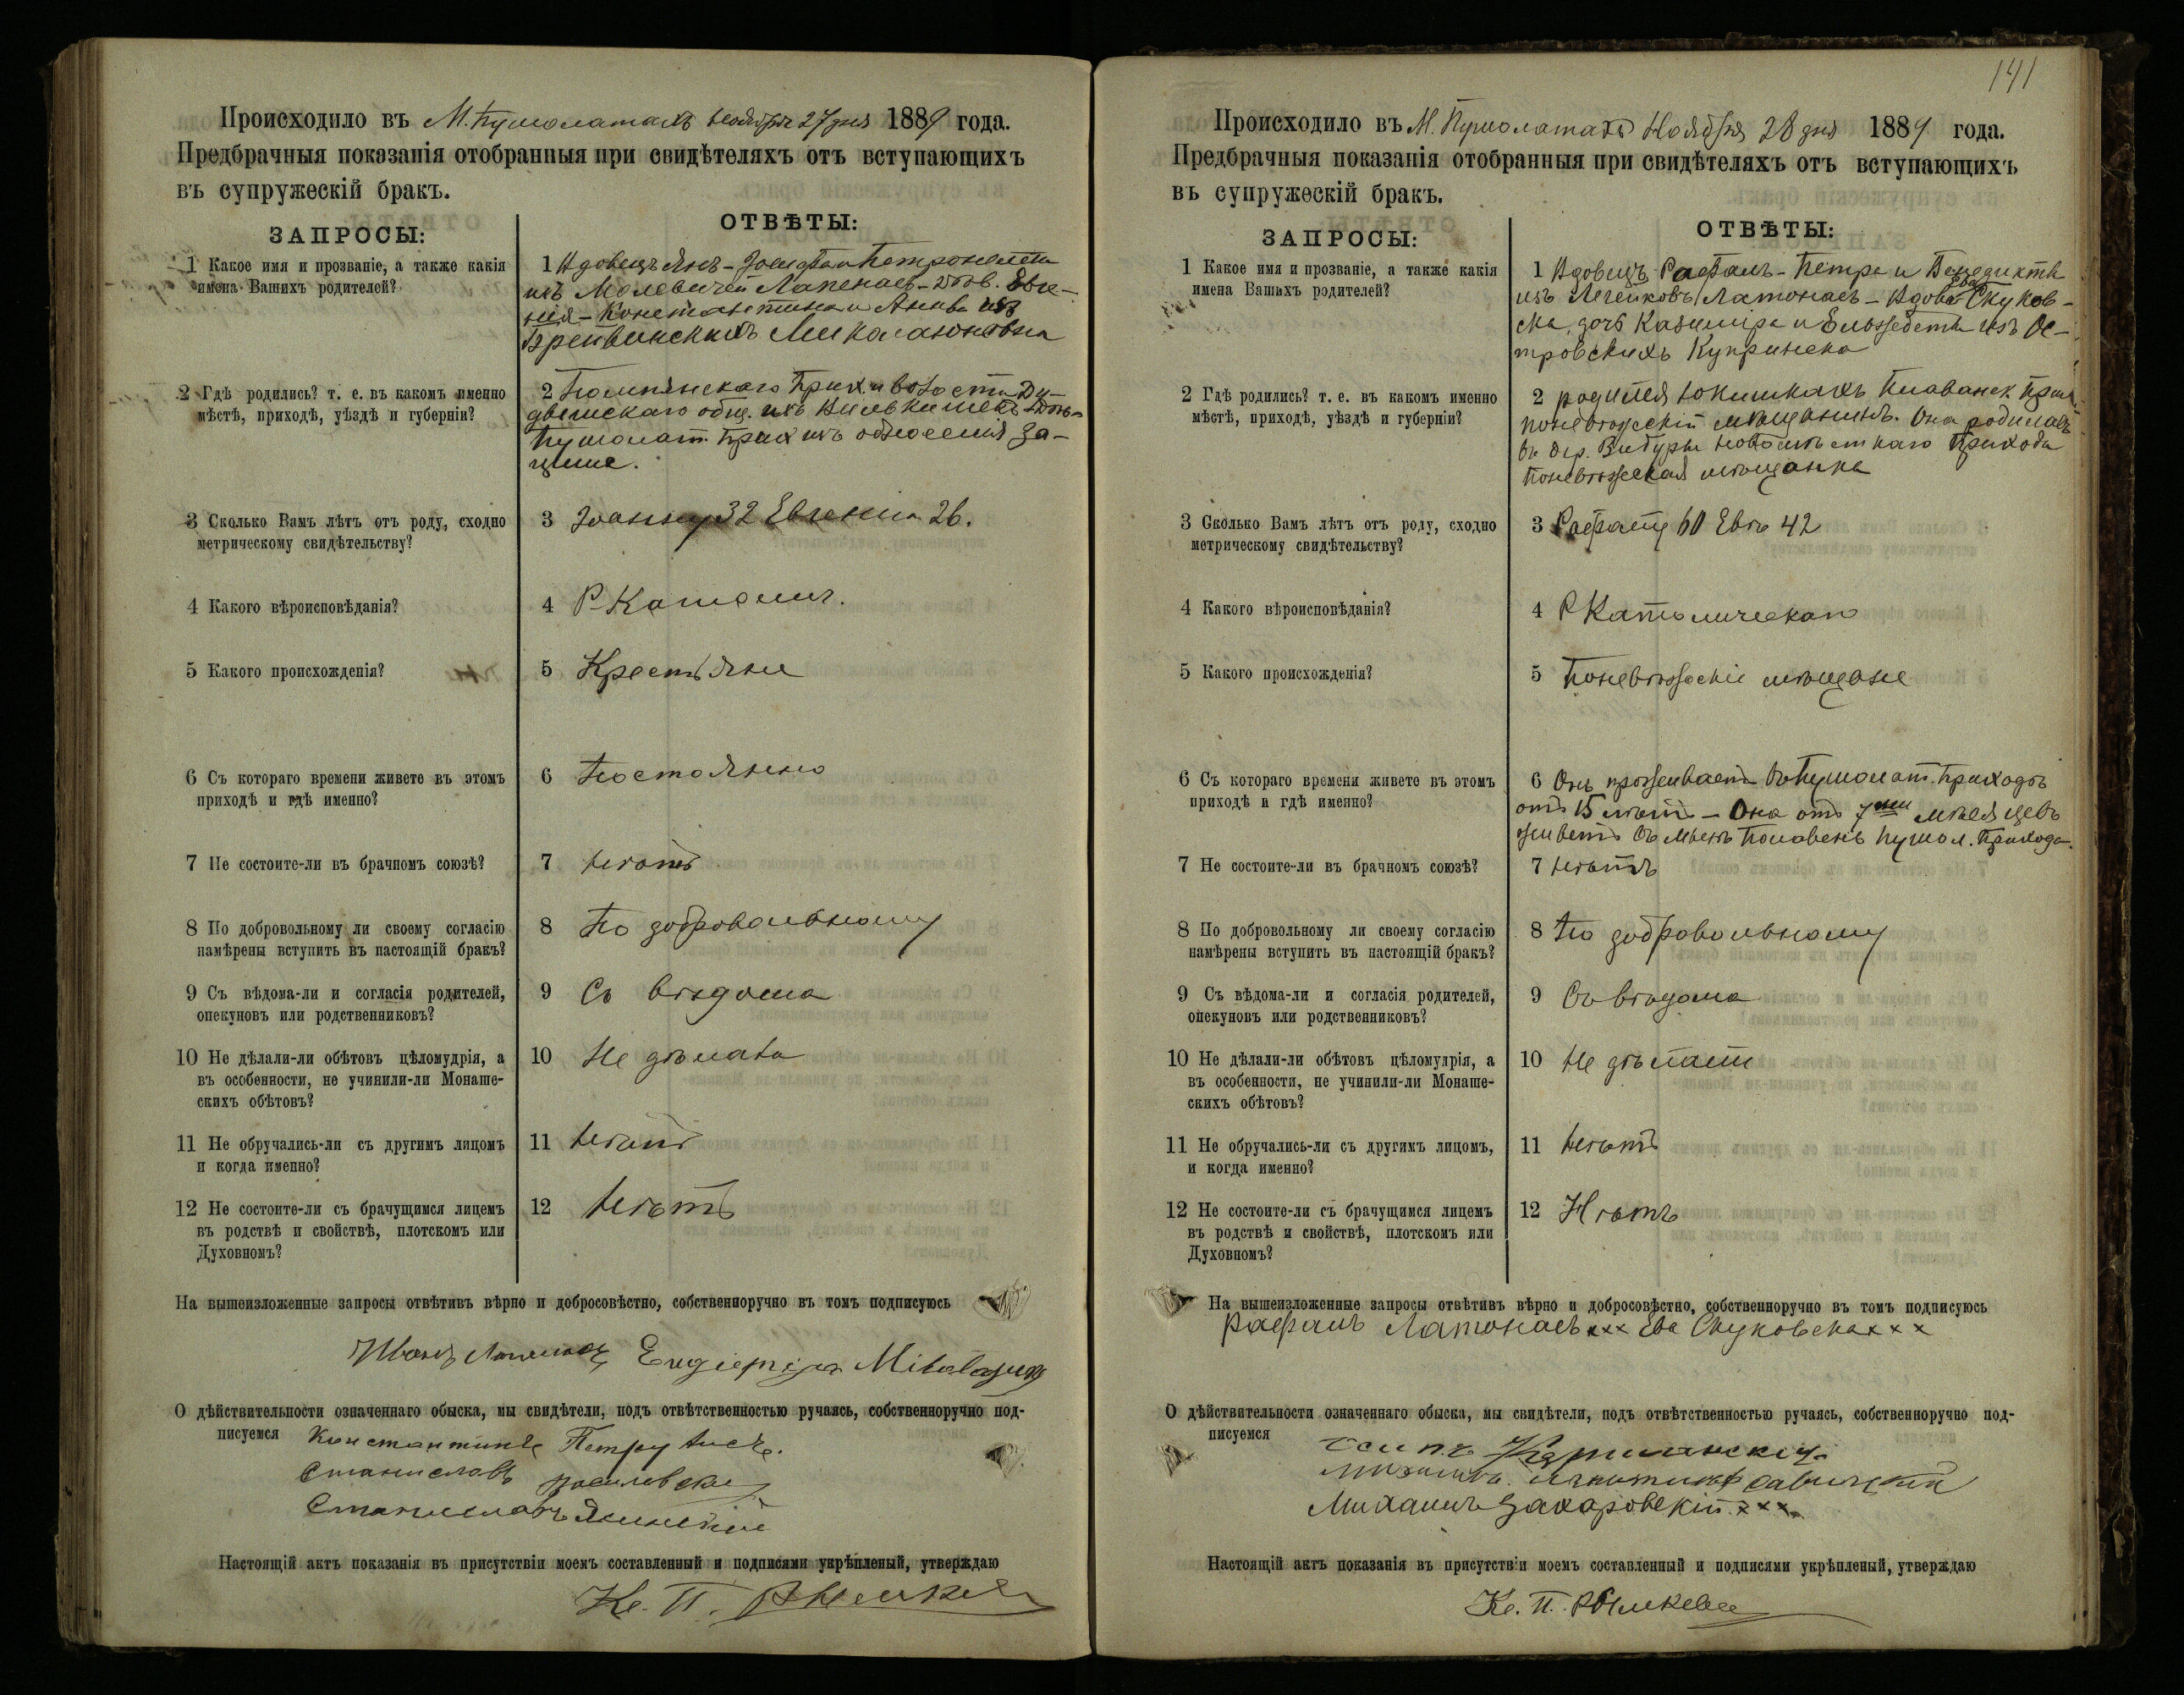 Происходило въ М. Пушолатахъ Ноября 27 дня 1889 года.
Предбрачныя показанія отобранныя при свидѣтеляхъ отъ вступающихъ
въ супружескій бракъ.
ЗАПРОСЫ:
ОТВѢТЫ:
1 Какое имя и прозваніе, а также какія
имена Вашихъ родителей?
1 Вдовецъ Янъ - Іосифа и Петронелли
изъ Лапенасъ - дѣв. Евге-
нія - Константина и Анны изъ
Миколаюновна
2 Гдѣ родились? т. е. въ какомъ именно
мѣстѣ, приходѣ, уѣздѣ и губерніи?
2 прих. и волости
общ. изъ
Пушолат. прих. изъ
3 Сколько Вамъ лѣтъ отъ роду, сходно
метрическому свидѣтельству?
3 Іоанну 32 Евгенія 26.
4 Какого вѣроисповѣданія?
4 Р. Католич.
5 Какого происхожденія?
5 Крестьяне
6 Съ котораго времени живете въ этомъ
приходѣ и гдѣ именно?
6 Постоянно
7 Не состоите-ли въ брачномъ союзѣ?
7 Нѣтъ
8 По добровольному ли своему согласію
намѣрены вступить въ настоящій бракъ?
8 По добровольному
9 Съ вѣдома-ли и согласія родителей,
опекуновъ или родственниковъ?
9 Съ вѣдома
10 Не дѣлали-ли обѣтовъ цѣломудрія, а
въ особенности, не учинили-ли Монаше-
скихъ обѣтовъ?
10 Не дѣлали
11 Не обручались-ли съ другимъ лицомъ
и когда именно?
11 Нѣтъ
12 Не состоите-ли съ брачущимся лицемъ
въ родствѣ и свойствѣ, плотскомъ или
Духовномъ?
12 Нѣтъ
На вышеизложенные запросы отвѣтивъ вѣрно и добросовѣстно, собственноручно въ томъ подписуюсь
Иванъ
О дѣйствительности означеннаго обыска, мы свидѣтели, подъ отвѣтственностью ручаясь, собственноручно под-
писуемся Константинъ
Станиславъ
Станиславъ
Настоящій актъ показанія въ присутствіи моемъ составленный и подписями укрѣпленый, утверждаю
Кс. П.
141
Происходило въ М. Пушолатахъ Ноября 28 дня 1889 года.
Предбрачныя показанія отобранныя при свидѣтеляхъ отъ вступающихъ
въ супружескій бракъ.
ЗАПРОСЫ:
ОТВѢТЫ:
1 Какое имя и прозваніе, а также какія
имена Вашихъ родителей?
1 Вдовецъ Рафалъ - Петра и Бенедикты
изъ Латонасъ - Вдова Ева Скуков-
ска, дочь Казиміра и Ельжбеты изъ Ос-
тровскихъ Купринска
2 Гдѣ родились? т. е. въ какомъ именно
мѣстѣ, приходѣ, уѣздѣ и губерніи?
2 родился прих.
поневѣжскій мѣщанинъ. Она родилась
въ дер. прихода
поневѣжская мѣщанка
3 Сколько Вамъ лѣтъ отъ роду, сходно
метрическому свидѣтельству?
3 Рафалу 60 Евѣ 42
4 Какого вѣроисповѣданія?
4 Р Католическаго
5 Какого происхожденія?
5 Поневѣжскіе мѣщане
6 Съ котораго времени живете въ этомъ
приходѣ и гдѣ именно?
6 Онъ проживаетъ въ Пушолат. приходѣ
отъ 15 лѣтъ - Она отъ 7ми мѣсяцевъ
живетъ въ Пушол. прихода.
7 Не состоите-ли въ брачномъ союзѣ?
7 Нѣтъ
8 По добровольному ли своему согласію
намѣрены вступить въ настоящій бракъ?
8 По добровольному
9 Съ вѣдома-ли и согласія родителей,
опекуновъ или родственниковъ?
9 Съ вѣдома
10 Не дѣлали-ли обѣтовъ цѣломудрія, а
въ особенности, не учинили-ли Монаше-
скихъ обѣтовъ?
10 Не дѣлали
11 Не обручались-ли съ другимъ лицомъ,
и когда именно?
11 Нѣтъ
12 Не состоите-ли съ брачущимся лицемъ
въ родствѣ и свойствѣ, плотскомъ или
Духовномъ?
12 Нѣтъ
На вышеизложенные запросы отвѣтивъ вѣрно и добросовѣстно, собственноручно въ томъ подписуюсь
Рафалъ Латонасъ ххх Ева Скуковска ххх
О дѣйствительности означеннаго обыска, мы свидѣтели, подъ отвѣтственностью ручаясь, собственноручно под-
писуемся
Михаилъ Захаровскій ххх
Настоящій актъ показанія въ присутствіи моемъ составленный и подписями укрѣпленый, утверждаю
Кс. П.